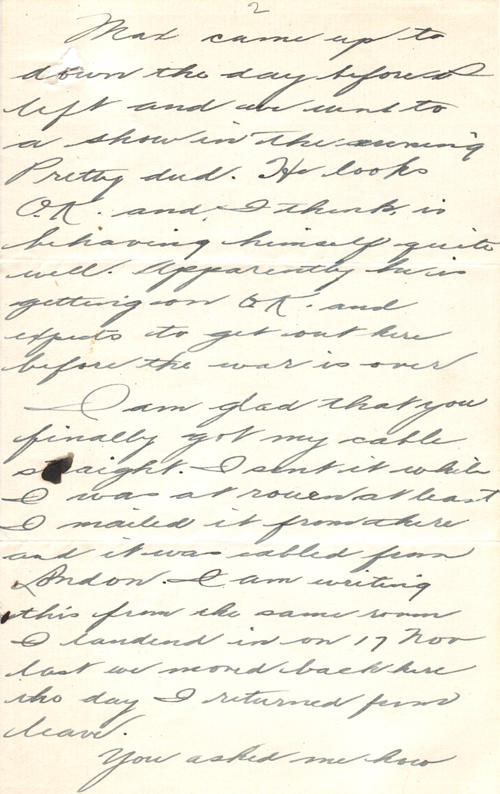 2
Max came up to
down the day before I
left and we went to
a show in the evening
Pretty dud. He looks
O.K. and, I think, is
behaving himself quite
well. Apparently he is
getting on O.K. and
expects to get out here
before the war is over
I am glad that you
finally got my cable
straight. I sent it while
I was at rouen at least
I mailed it from there
and it was cabled from
London. I am writing
this from the same room
I landend in on 17 Nov
last we moved back here
the day I returned from
leave.
You asked me how